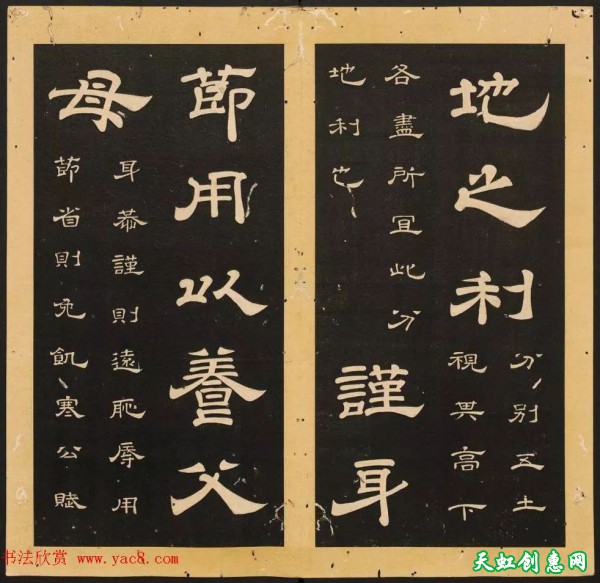 地之利
分別五土
視其高下
各盡所宜此分
地利也
謹身
節用以養父
母
身恭謹則遠恥辱用
節省則免飢寒公賦
书法欣赏 www.yac8.com
天虹创惠网